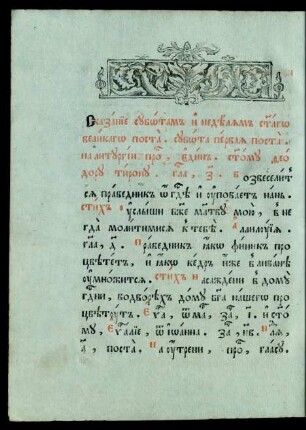 Сказанїе сꙋбѡтамъ и недѣлѧмъ ст҃агѡ
великагѡ поста. сꙋбѡта первая поста.
на литꙋргїи про, ст҃омꙋ ѳео
дорꙋ тиронꙋ. гла, з҃. в озвеселит
сѧ праведникъ ѡ гд҃ѣ и ꙋповаетъ нань.
стих ꙋслыши бж҃е мл҃твꙋ мою, в не
гда молитимисѧ к тебѣ. аллилꙋїа.
гла, д҃. праведникъ ꙗкѡ финикъ про
цвѣтетъ, и ꙗкѡ кедръ иже в ливанѣ
ꙋмножитсѧ. стих насаждени в домꙋ
гд҃ни, во дворѣхъ домꙋ бг҃а нашего про
цвѣтꙋт. еѵа, ѿ ма, за, і҃. и ст҃о
мꙋ, еѵалїе, ѿ иоанна. за, н҃в. нлѧ,
а҃, поста. на ꙋтрени, про, гласꙋ.